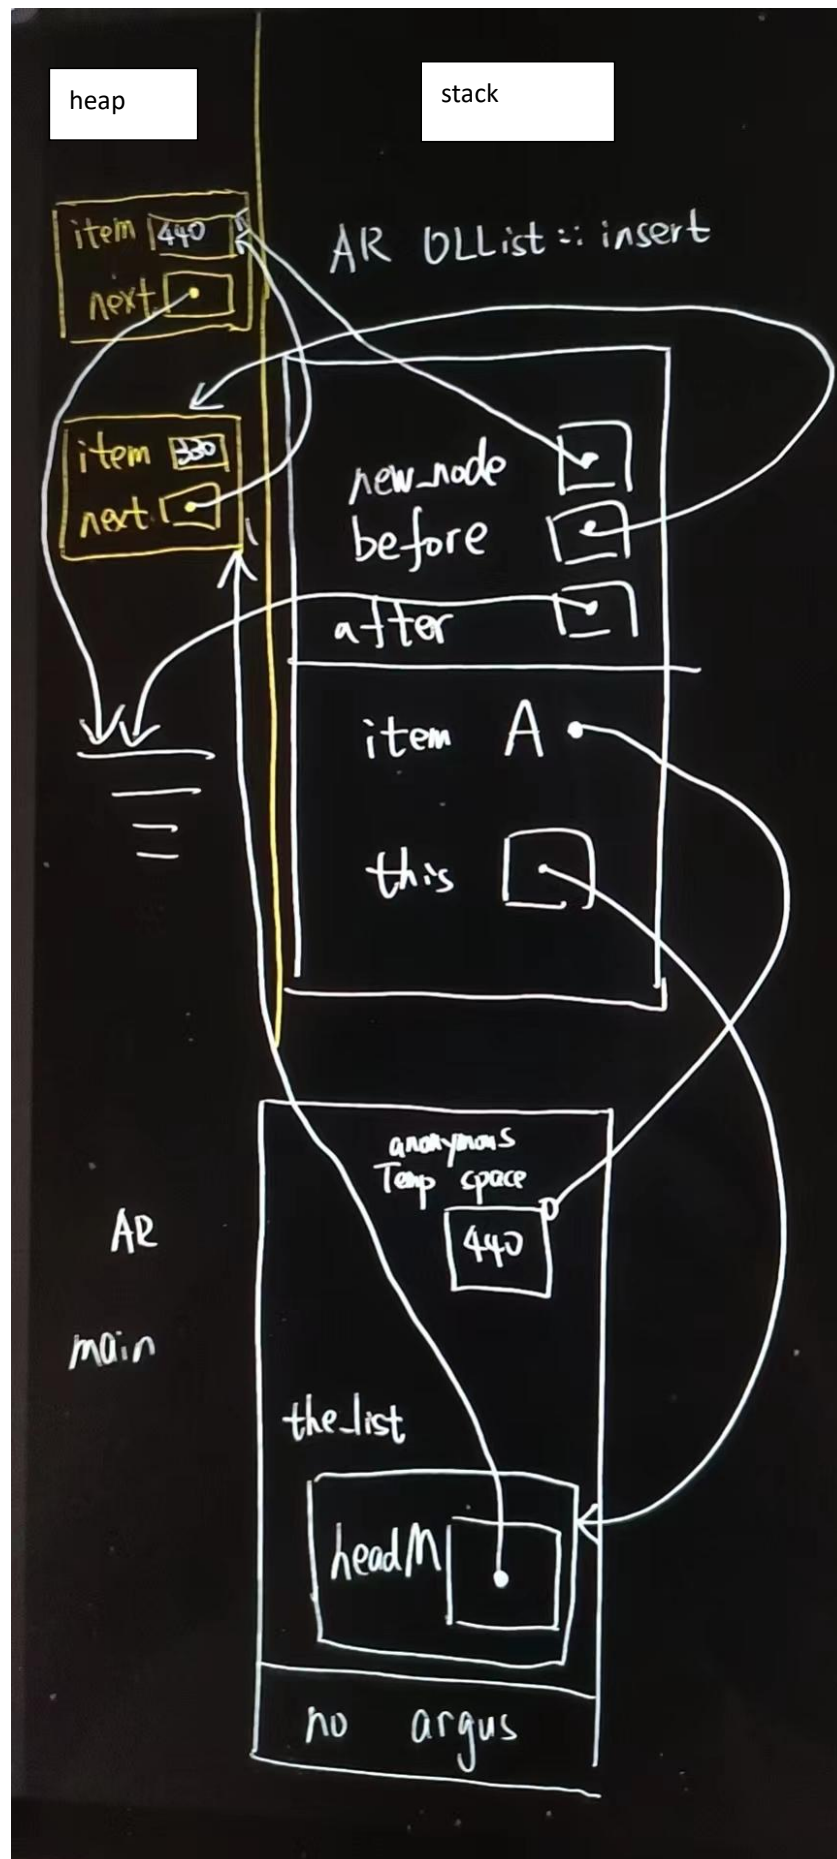 heap
stack
item 440
next
AR OLList :: insert
item 330
next
new_node
before
after
item A
this
anonymous
Temp space
440
AR
main
the_list
headM
no argus